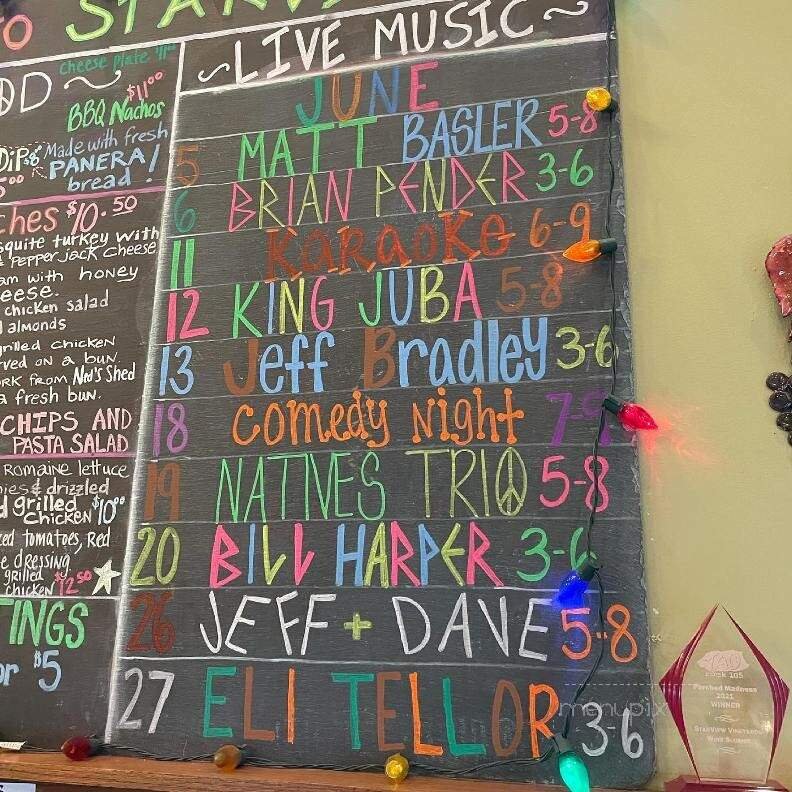 TO STARV
cheese plate
OD
$11.00
BBQ Nachos
Dips
Made with fresh
PANERA!
bread!
ches $10.50
squite turkey with
Pepper jack cheese
am with honey
eese.
chicken salad
almonds
grilled chicken
rved on a bun
ork from Ned's Shed
a fresh bun.
CHIPS AND
PASTA SALAD
Romaine lettuce
ies & drizzled
d grilled
chicken $10.00
ced tomatoes, Red
e dressing
grilled
chicken $12.50
TINGS
or $5
~LIVE MUSIC~
JUNE
5 MATT BASLER 5-8
6 BRIAN PENDER 3-6
11 Karaoke 6-9
12 KING JUBA 5-8
13 Jeff Bradley 3-6
18 comedy Night 7-9
19 NATIVES TRIO 5-8
20 BILL HARPER 3-6
26 JEFF + DAVE 5-8
27 ELI TELLOR 3-6
menupix
Rock 105
Parched Madness
2021
WINNER
StarView Vineyards